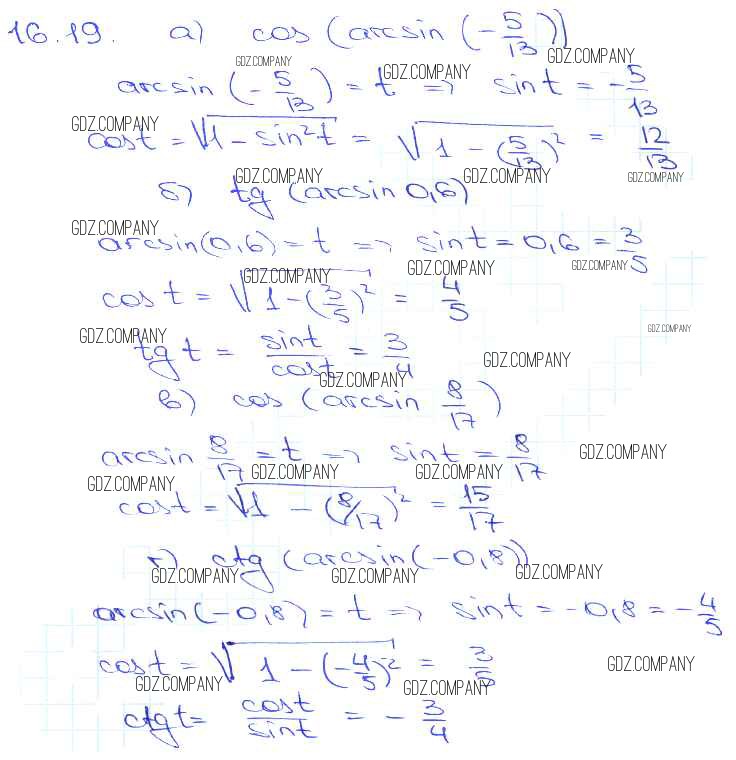 16.19. а) cos (arcsin (-5/13))
GDZ.COMPANY GDZ.COMPANY GDZ.COMPANY
arcsin (-5/13) = t => sin t = -5/13
GDZ.COMPANY
cos t = √(1 - sin²t) = √(1 - (5/13)²) = 12/13
GDZ.COMPANY GDZ.COMPANY GDZ.COMPANY
б) tg (arcsin 0,6)
GDZ.COMPANY
arcsin(0,6) = t => sin t = 0,6 = 3/5
GDZ.COMPANY GDZ.COMPANY GDZ.COMPANY
cos t = √(1 - (3/5)²) = 4/5
GDZ.COMPANY GDZ.COMPANY
tg t = sin t / cos t = 3/4
GDZ.COMPANY GDZ.COMPANY
в) cos (arcsin 8/17)
arcsin 8/17 = t => sin t = 8/17
GDZ.COMPANY GDZ.COMPANY GDZ.COMPANY GDZ.COMPANY
cos t = √(1 - (8/17)²) = 15/17
г) ctg (arcsin(-0,8))
GDZ.COMPANY GDZ.COMPANY GDZ.COMPANY
arcsin(-0,8) = t => sin t = -0,8 = -4/5
cos t = √(1 - (-4/5)²) = 3/5
GDZ.COMPANY GDZ.COMPANY GDZ.COMPANY
ctg t = cos t / sin t = - 3/4